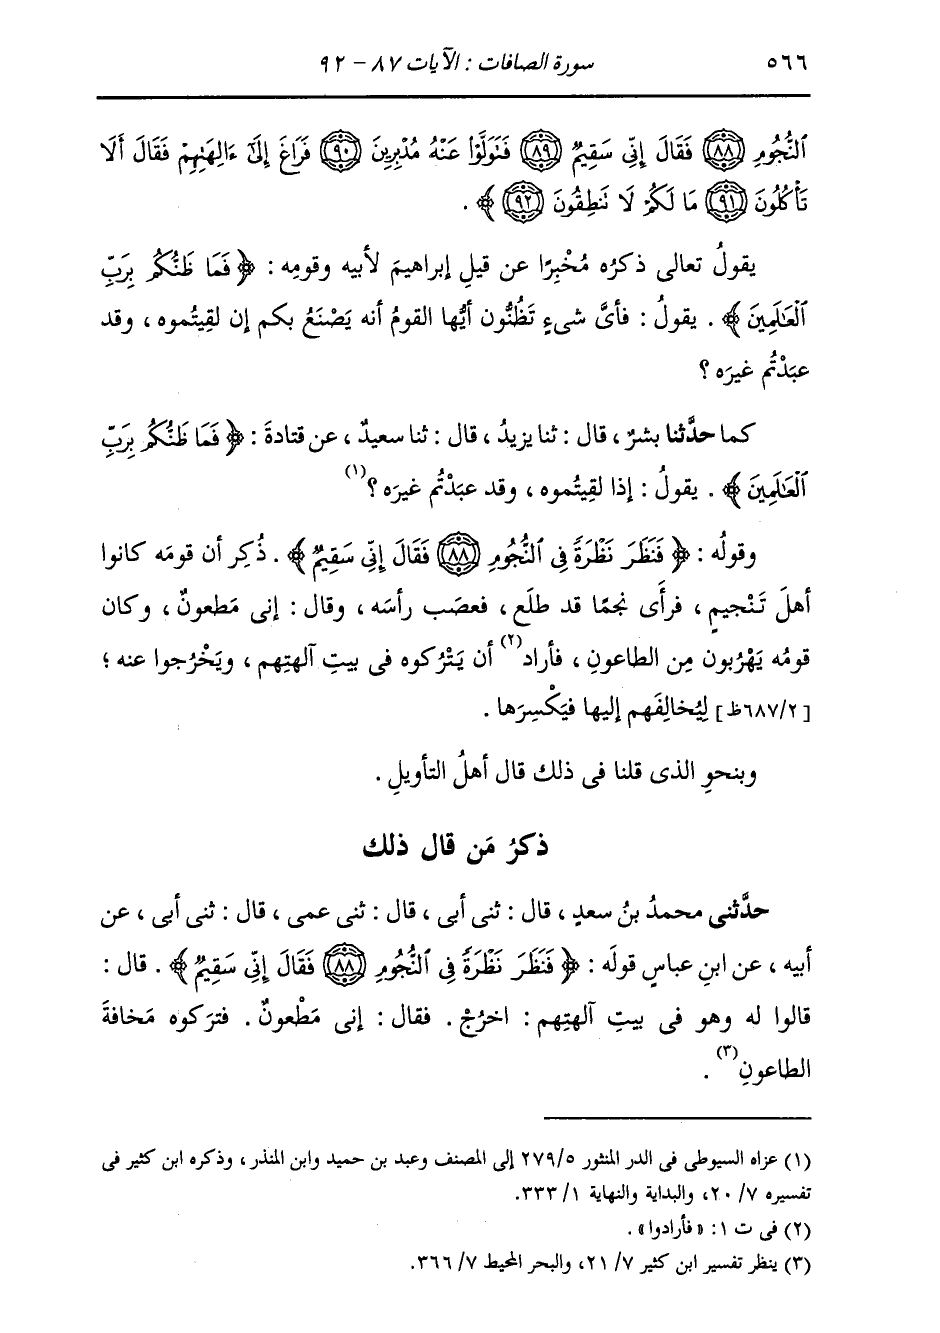 ٥٦٦ سورة الصافات : الآيات ٨٧ - ٩٢
ٱلنُّجُومِ (٨٨) فَقَالَ إِنِّي سَقِيمٌ (٨٩) فَتَوَلَّوْاْ عَنْهُ مُدْبِرِينَ (٩٠) فَرَاغَ إِلَىٰٓ ءَالِهَتِهِمْ فَقَالَ أَلَا
تَأْكُلُونَ (٩١) مَا لَكُمْ لَا تَنطِقُونَ (٩٢) ﴾ .
يقولُ تعالى ذكرُه مُخْبِرًا عن قيلِ إبراهيمَ لأبيه وقومِه : ﴿ فَمَا ظَنُّكُم بِرَبِّ
ٱلْعَٰلَمِينَ ﴾ . يقولُ : فأىَّ شىءٍ تَظُنُّون أيُّها القومُ أنه يَصْنَعُ بكم إن لقِيتُموه ، وقد
عبَدْتُم غيرَه ؟
كما حدَّثنا بشرٌ ، قال : ثنا يزيدُ ، قال : ثنا سعيدٌ ، عن قتادةَ : ﴿ فَمَا ظَنُّكُم بِرَبِّ
ٱلْعَٰلَمِينَ ﴾ . يقولُ : إذا لقِيتُموه ، وقد عبَدْتُم غيرَه ؟(١)
وقولُه : ﴿ فَنَظَرَ نَظْرَةً فِى ٱلنُّجُومِ (٨٨) فَقَالَ إِنِّي سَقِيمٌ ﴾ . ذُكِر أن قومَه كانوا
أهلَ تَنْجيمٍ ، فرأَى نجمًا قد طلَع ، فعصَب رأسَه ، وقال : إنى مَطعونٌ ، وكان
قومُه يَهْرُبون مِن الطاعونِ ، فأراد(٢) أن يَتْرُكوه فى بيتِ آلهتِهم ، ويَخْرُجوا عنه ؛
[٦٨٧/٢ظ] لِيُخالِفَهم إليها فيَكْسِرَها .
وبنحوِ الذى قلنا فى ذلك قال أهلُ التأويلِ .
ذكرُ مَن قال ذلك
حدَّثنى محمدُ بنُ سعدٍ ، قال : ثنى أبى ، قال : ثنى عمى ، قال : ثنى أبى ، عن
أبيه ، عن ابنِ عباسٍ قولَه : ﴿ فَنَظَرَ نَظْرَةً فِى ٱلنُّجُومِ (٨٨) فَقَالَ إِنِّي سَقِيمٌ ﴾ . قال :
قالوا له وهو فى بيتِ آلهتِهم : اخرُجْ . فقال : إنى مَطْعونٌ . فترَكوه مَخافةَ
الطاعونِ(٣) .
(١) عزاه السيوطى فى الدر المنثور ٢٧٩/٥ إلى المصنف وعبد بن حميد وابن المنذر ، وذكره ابن كثير فى
تفسيره ٢٠/٧، والبداية والنهاية ٣٣٣/١.
(٢) فى ت ١: « فأرادوا » .
(٣) ينظر تفسير ابن كثير ٢١/٧، والبحر المحيط ٣٦٦/٧.